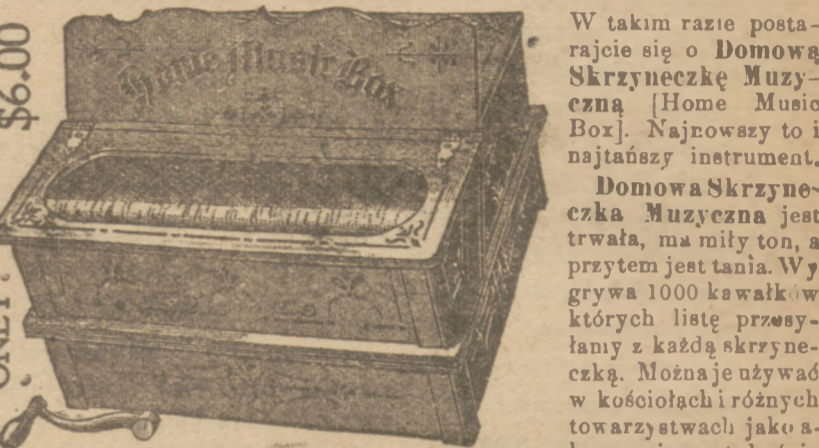 $6.00
ONLY
Home Music Box
W takim razie posta-
rajcie się o Domową
Skrzyneczkę Muzy-
czną [Home Music
Box]. Najnowszy to i
najtańszy instrument.
Domowa Skrzyne-
czka Muzyczna jest
trwała, ma miły ton, a
przytem jest tania. Wy
grywa 1000 kawałków
których listę przesy-
łamy z każdą skrzyne-
czką. Można je używać
w kościołach i różnych
towarzystwach jako a-